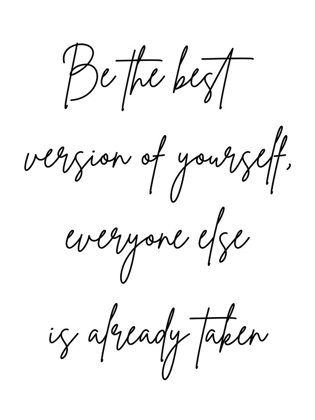 Be the best
version of yourself,
everyone else
is already taken